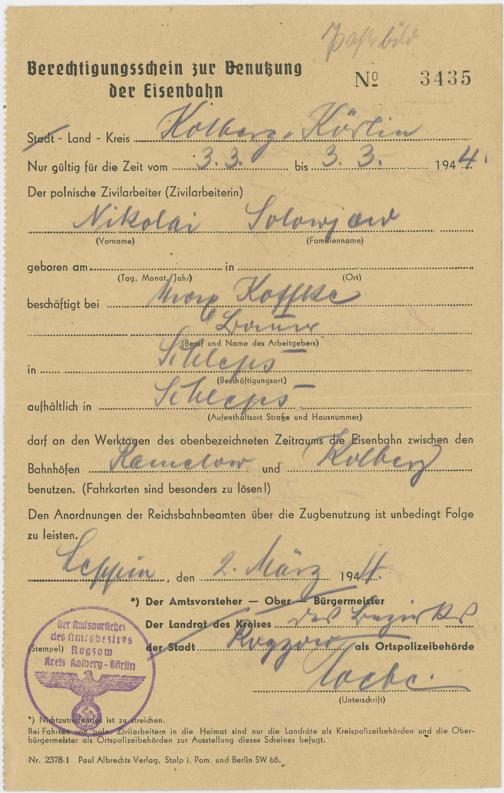 Paßbild
Berechtigungsschein zur Benutzung
der Eisenbahn
No 3435
Stadt - Land - Kreis Kolberg-Körlin
Nur gültig für die Zeit vom 3.3. bis 3.3. 1944.
Der polnische Zivilarbeiter (Zivilarbeiterin)
Nikolai Solowjew
(Vorname) (Familienname)
geboren am in
(Tag, Monat, Jahr) (Ort)
beschäftigt bei
(Beruf und Name des Arbeitgebers)
in Schleps
(Beschäftigungsort)
aufhältlich in Schleps
(Aufenthaltsort Straße und Hausnummer)
darf an den Werktagen des obenbezeichneten Zeitraums die Eisenbahn zwischen den
Bahnhöfen Ramelow und Kolberg
benutzen. (Fahrkarten sind besonders zu lösen!)
Den Anordnungen der Reichsbahnbeamten über die Zugbenutzung ist unbedingt Folge
zu leisten.
Leppin, den 2. März 1944.
*) Der Amtsvorsteher — Ober — Bürgermeister
Der Landrat des Kreises des Bezirks
der Stadt Rogzow als Ortspolizeibehörde
(Stempel)
Der Amtsvorsteher
des Amtsbezirks
Rogzow
Kreis Kolberg-Körlin
(Unterschrift)
*) Nichtzutreffendes ist zu streichen.
Bei Fahrten von poln. Zivilarbeitern in die Heimat sind nur die Landräte als Kreispolizeibehörden und die Ober-
bürgermeister als Ortspolizeibehörden zur Ausstellung dieses Scheines befugt.
Nr. 2378-1 Paul Albrechts Verlag, Stolp i. Pom. und Berlin SW 68.